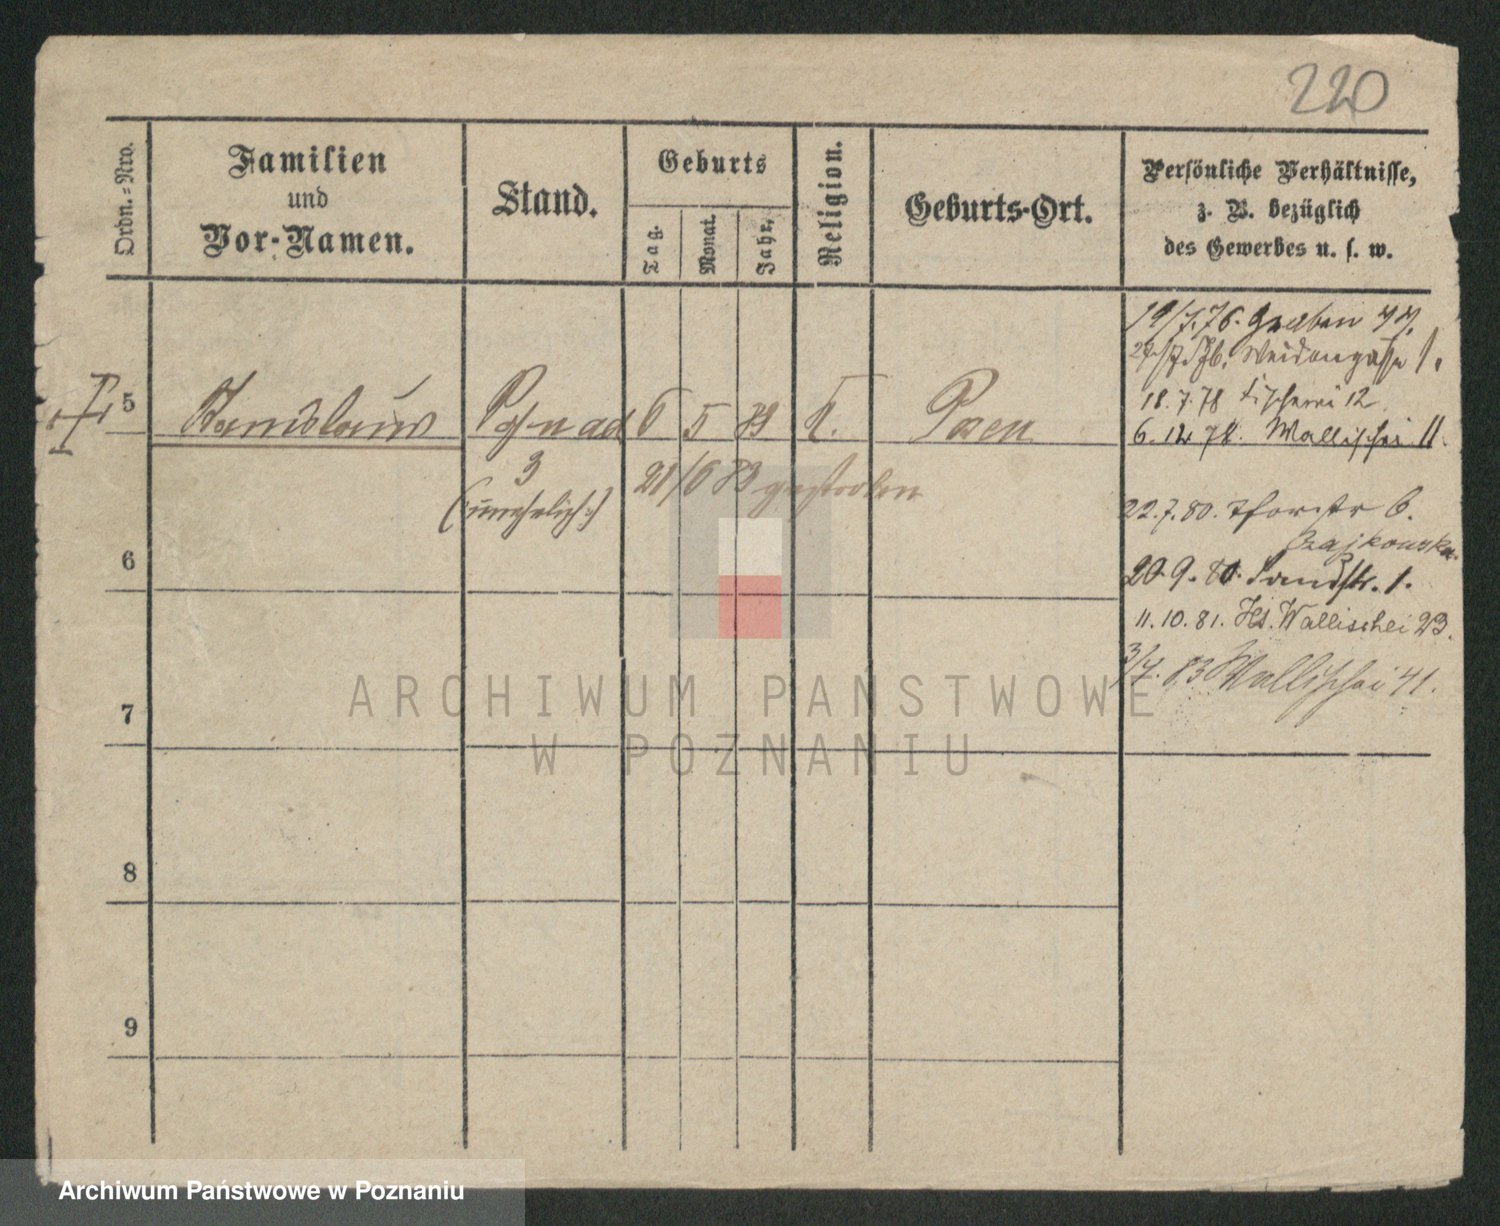 220
Ordn.=Nro.
Familien
und
Vor-Namen.
Stand.
Geburts
Tag.
Monat.
Jahr.
Religion.
Geburts-Ort.
Persönliche Verhältnisse,
z. B. bezüglich
des Gewerbes u. s. w.
19/7. 76. Graben
Weidengasse 1.
18. 7. 78 Fischerei 12
6. 12. 78. Wallischei 11.
5
Stanislaus
6 5 83
K.
Posen
3
(:unehelich:)
21/6 83 gestorben
22. 7. 80. Thorstr 6.
Czajkowska
6
20. 9. 80. Sandstr. 1.
11. 10. 81. Hs. Wallischei 23.
3/7. 83 Wallischei 41.
7
8
9
ARCHIWUM PAŃSTWOWE
W POZNANIU
Archiwum Państwowe w Poznaniu